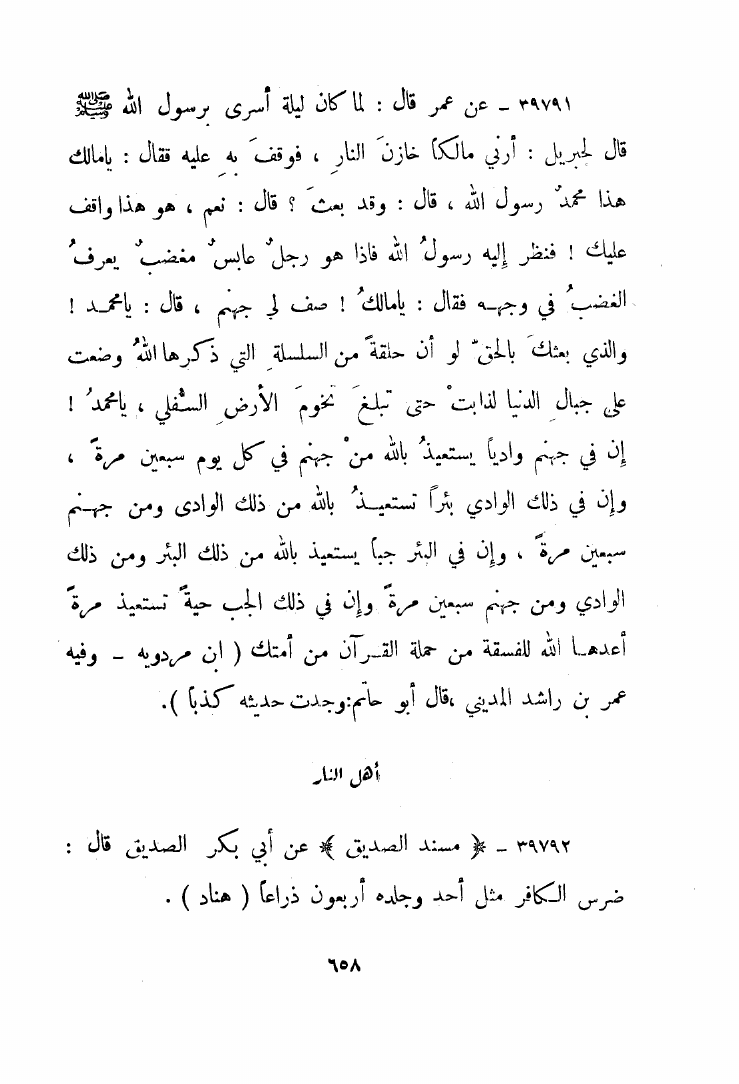 ٣٩٧٩١ - عن عمر قال : لما كان ليلة أسرى برسول الله ﷺ
قال لجبريل : أرني مالكاً خازنَ النارِ ، فوقفَ بهِ عليه فقال : يامالك
هذا محمدٌ رسول الله ، قال : وقد بعثَ ؟ قال : نعم ، هو هذا واقف
عليك ! فنظر إليه رسولُ الله فاذا هو رجلٌ عابسٌ مغضبٌ يعرفُ
الغضبُ في وجهه فقال : يامالكُ ! صف لي جهنم ، قال : يامحمد !
والذي بعثكَ بالحقّ لو أن حلقةً من السلسلةِ التي ذكرها اللهُ وضعت
على جبالِ الدنيا لذابتْ حتى تبلغَ تخومَ الأرضِ السفلي ، يامحمدُ !
إن في جهنم وادياً يستعيذُ بالله منْ جهنم في كل يوم سبعين مرةً ،
وإن في ذلك الوادي بئراً تستعيذُ بالله من ذلك الوادى ومن جهنم
سبعين مرةً ، وإن في البئر جباً يستعيذ بالله من ذلك البئر ومن ذلك
الوادي ومن جهنم سبعين مرةً وإن في ذلك الجب حيةً تستعيذ مرةً
أعدها الله للفسقة من حملة القرآن من أمتك ( ابن مردويه - وفيه
عمر بن راشد المديني ،قال أبو حاتم:وجدت حديثه كذباً ).
أهل النار
٣٩٧٩٢ - ﴿ مسند الصديق ﴾ عن أبي بكر الصديق قال :
ضرس الكافر مثل أحد وجلده أربعون ذراعاً ( هناد ) .
٦٥٨